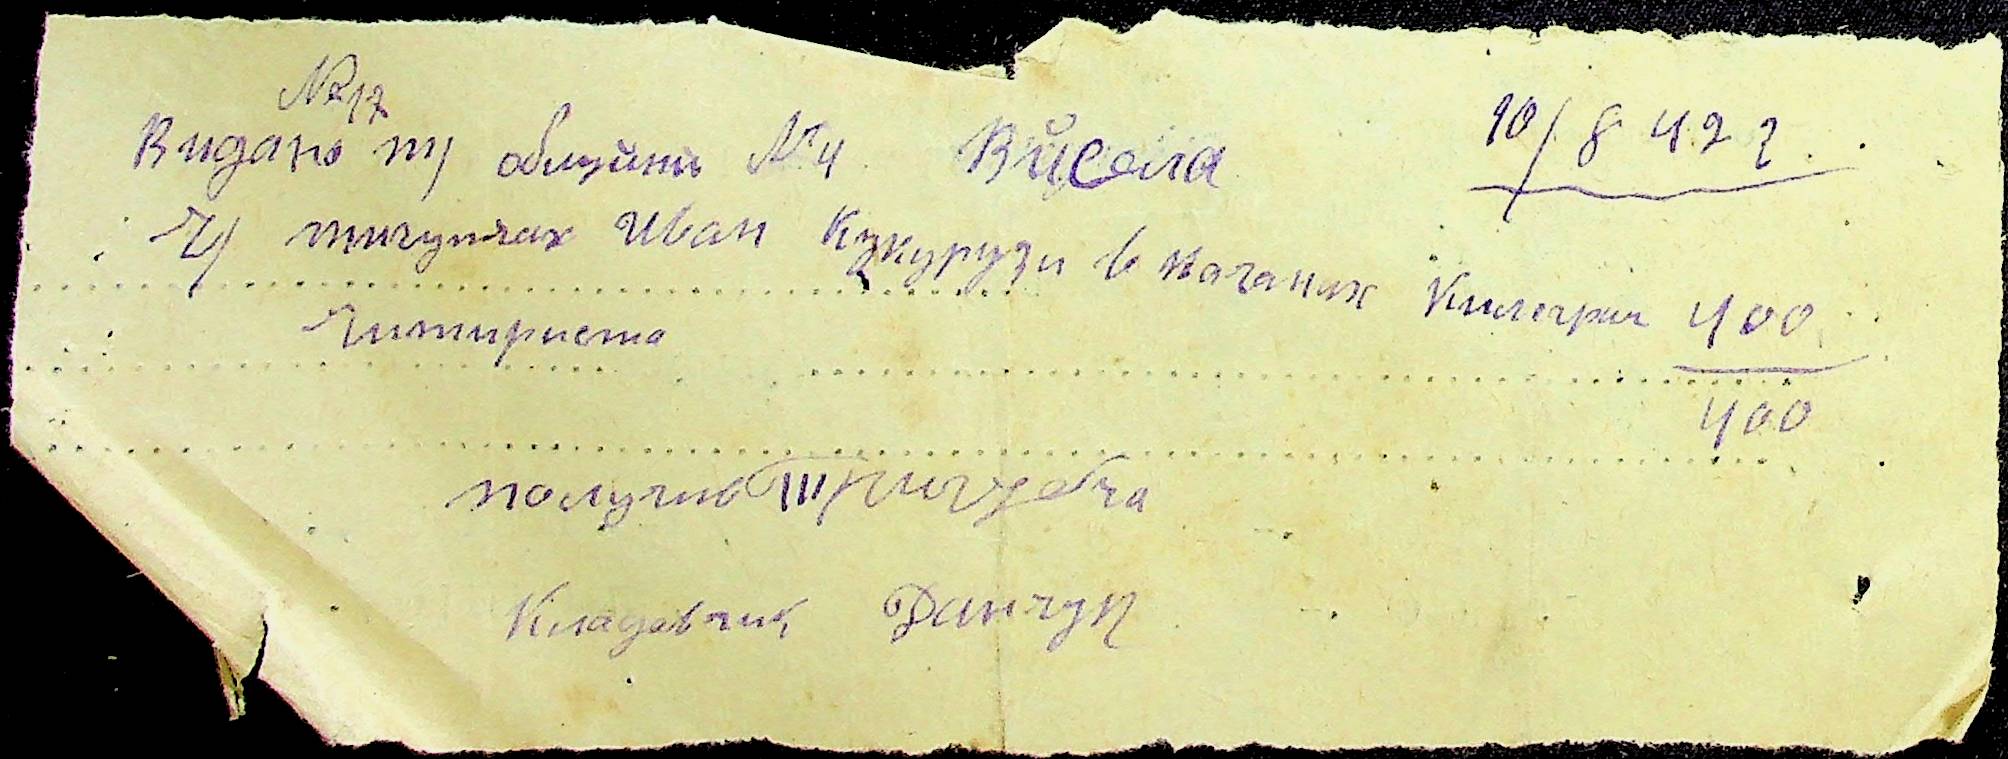 №17
Видано ту общині №4 Висела 10/8 42 г.
Ч/ Иван Кукурузи в качанах Килограм 400
Читириста
400
получив
Кладовчик Данчук